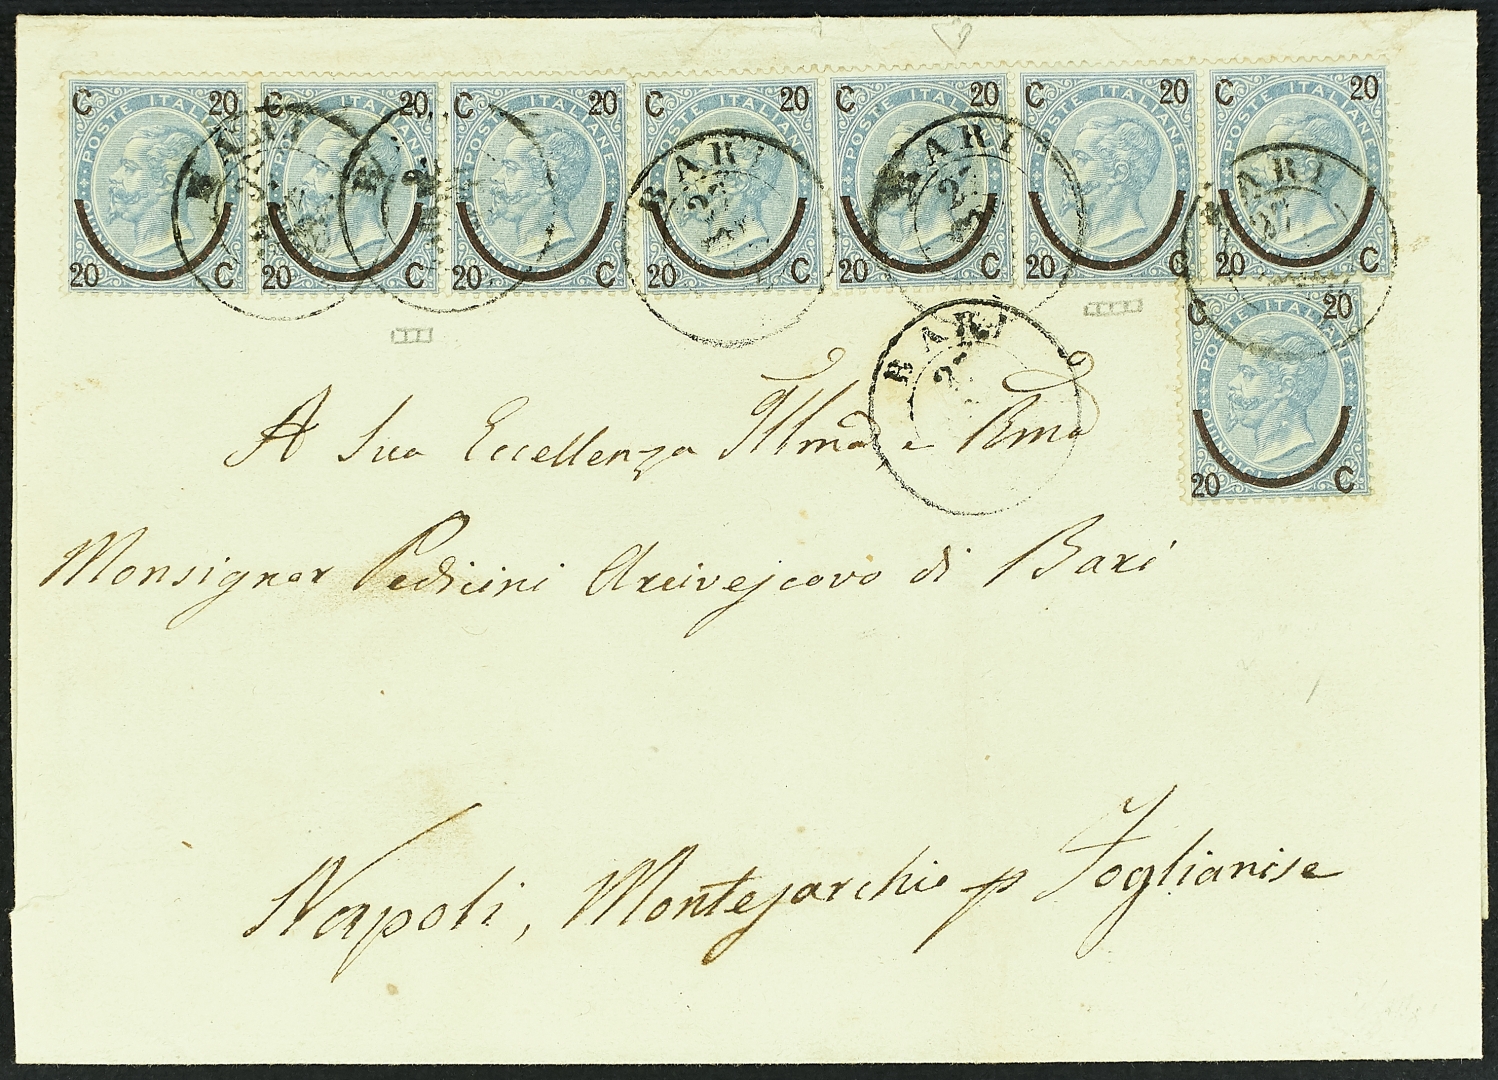 C 20 C 20 C 20 C 20 C 20 C 20 C 20
POSTE ITALIANE POSTE ITALIANE POSTE ITALIANE POSTE ITALIANE POSTE ITALIANE POSTE ITALIANE POSTE ITALIANE
BARI BARI BARI BARI
27 27 27
20 C 20 C 20 C 20 C 20 C 20 C 20 C
C 20
POSTE ITALIANE
20 C
BARI
27
A Sua Eccellenza Illma, e Rma
Monsignor Pedicini Arcivescovo di Bari
Napoli, Montesarchio p Foglianise